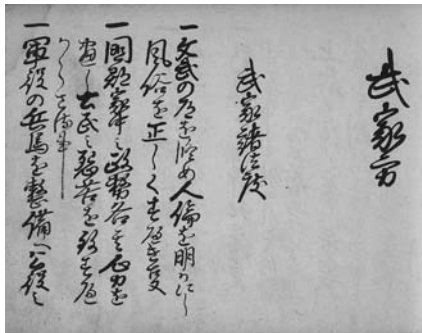 武家
武家諸法度
一文武の道を修め人倫を明かにし
風俗を正しくすへき事
一國郡家中之政務各其心力を
盡し士民之怨苦を致すへ
からさる事
一軍役の兵馬を整備へ公役之